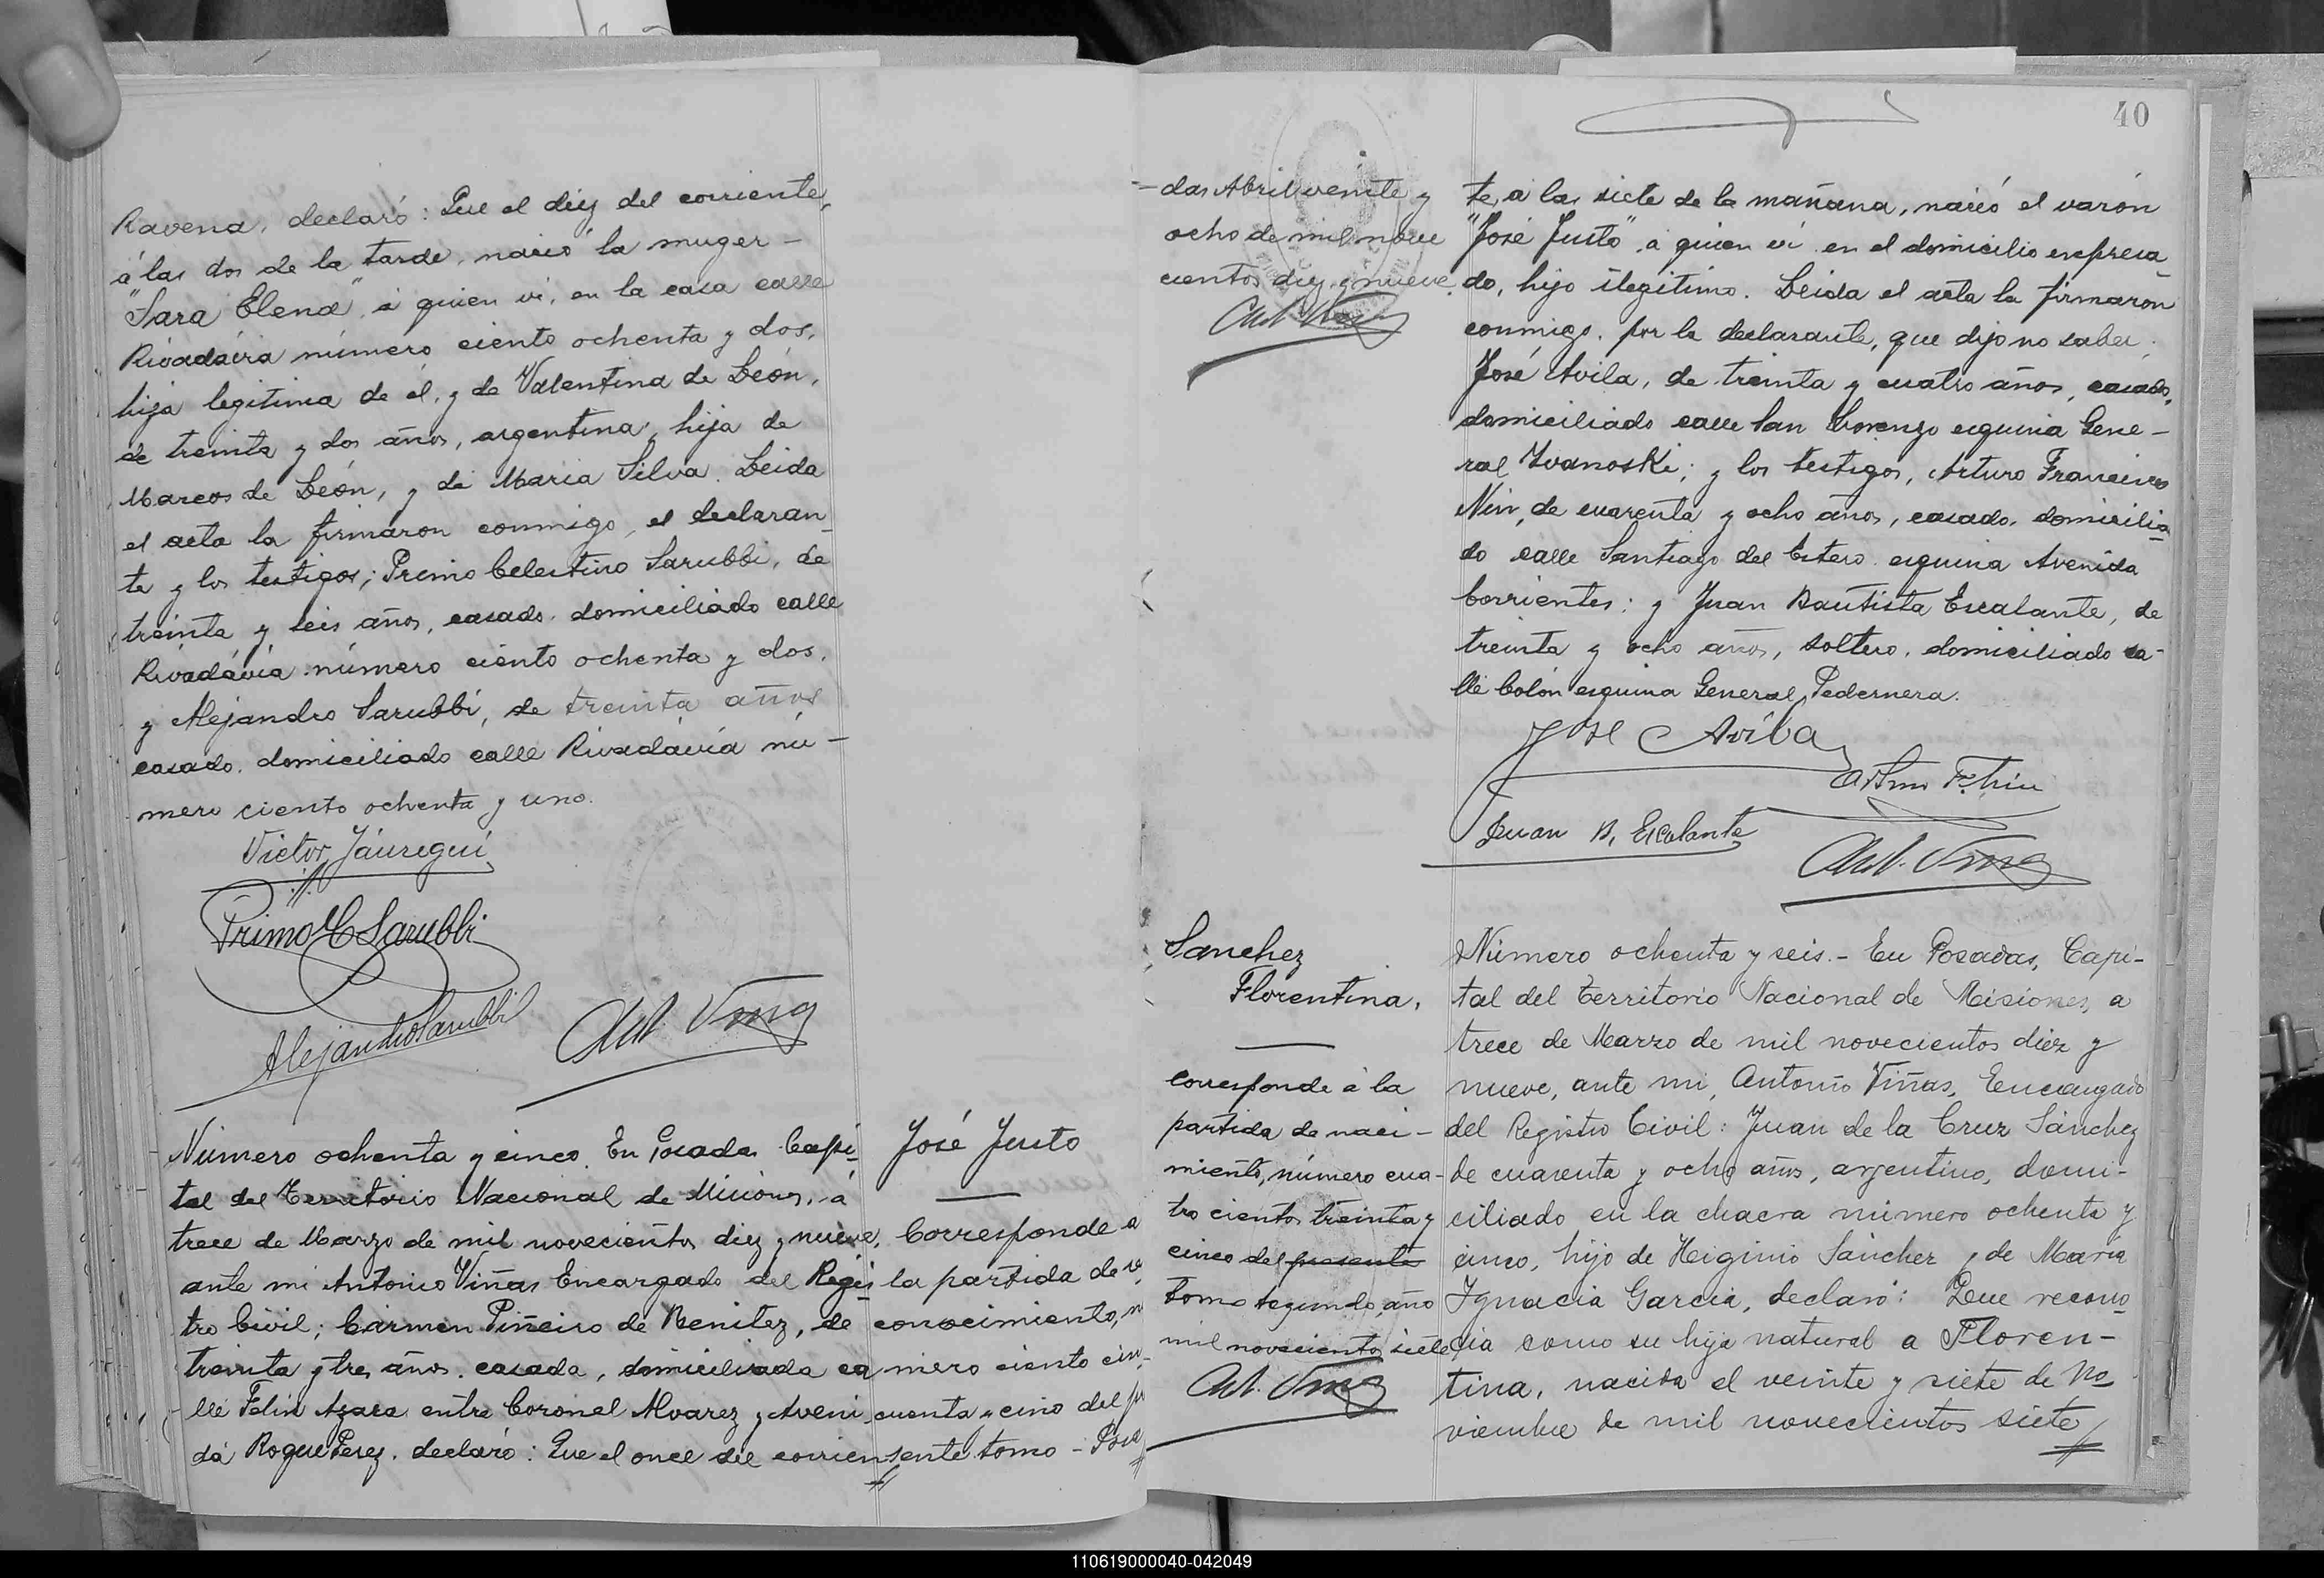 Ravena, declaró: Que el diez del corriente,
á las dos de la tarde, nació la muger –
"Sara Elena" á quien vi, en la casa calle
Rivadavia número ciento ochenta y dos,
hija legitima de él, y de Valentina de León,
de treinta y dos años, argentina, hija de
Marcos de León, y de Maria Silva. Leida
el acta la firmaron conmigo, el declaran-
te y los testigos; Primo Celestino Sarubbi, de
treinta y seis años, casado, domiciliado calle
Rivadavia número ciento ochenta y dos,
y Alejandro Sarubbi, de treinta años
casado, domiciliado calle Rivadavia nú-
mero ciento ochenta y uno.
Victor Jáuregui
Primo C Sarubbi
Alejandro Sarubbi
Número ochenta y cinco. En Posadas Capi-
tal del Territorio Nacional de Misiones, á
trece de Marzo de mil novecientos diez y nueve,
ante mi Antonio Viñas Encargado del Regis-
tro Civil; Cármen Piñeiro de Benitez, de
treinta y tres años, casada, domiciliada ca
lle Felix Azara entre Coronel Alvarez y Aveni-
da Roque Perez, declaró: Que el once del corrien
José Justo
Corresponde a
la partida de re
conocimiento, n
mero ciento cin-
cuenta y cinco del p
sente tomo – Posa
40
– das Abril veinte y
ocho de mil nove
cientos diez y nueve.
te, a las siete de la mañana, nació el varón
"José Justo", a quien vi en el domicilio expresa-
do, hijo ilegitimo. Leida el acta la firmaron
conmigo, por la declarante, que dijo no saber,
José Avila, de treinta y cuatro años, casado,
domiciliado calle San Lorenzo esquina Gene-
ral Yvanoski; y los testigos, Arturo Francisco
Nin, de cuarenta y ocho años, casado, domicilia
do calle Santiago del Estero esquina Avenida
Corrientes; y Juan Bautista Escalante, de
treinta y ocho años, soltero, domiciliado ca-
lle Colón esquina General Pedernera.
José Avila
Arturo F. Nin
Juan B. Escalante
Sanchez
Florentina,
corresponde á la
partida de naci-
miento, número cua-
tro cientos treinta y
cinco del presente
tomo segundo, año
mil novecientos siete
Número ochenta y seis. – En Posadas, Capi-
tal del Territorio Nacional de Misiones, a
trece de Marzo de mil novecientos diez y
nueve, ante mi, Antonio Viñas, Encargado
del Registro Civil: Juan de la Cruz Sánchez
de cuarenta y ocho años, argentino, domi-
ciliado en la chacra número ochenta y
cinco, hijo de Higinio Sánchez y de María
Ignacia García, declaró: Que recono-
cia como su hija natural a Floren-
tina, nacida el veinte y siete de No
viembre de mil novecientos siete
110619000040-042049